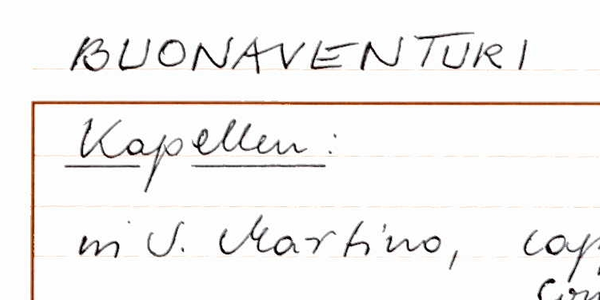 BUONAVENTURI
Kapellen:
in S. Martino,